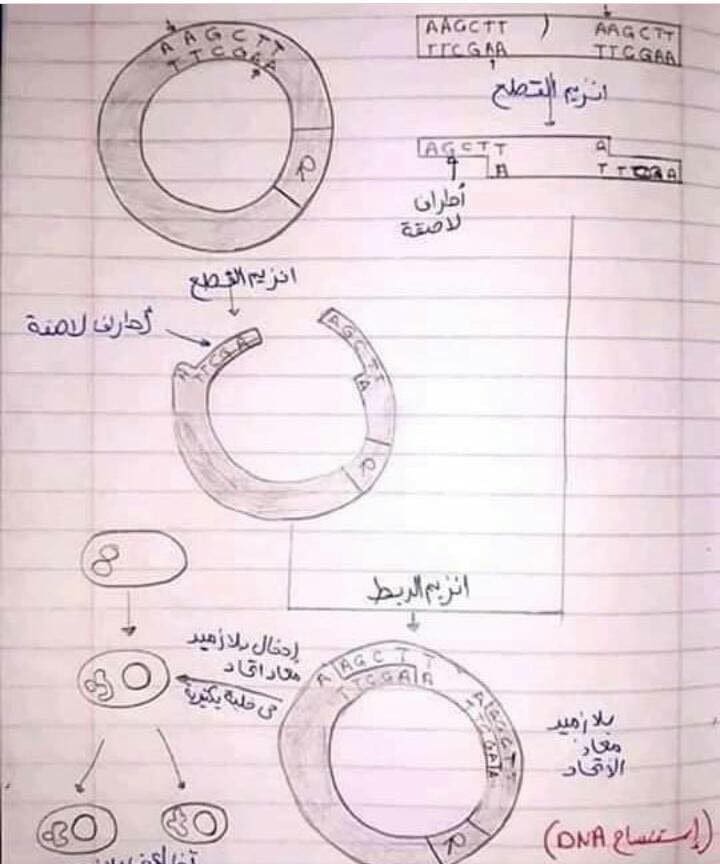 AAGCTT
TTCGAA
AAGCTT
TTCGAA
AAGCTT
TTCGAA
انزيم القطع
AGCTT
A
A
TTCGA
أطراف
لاصقة
R
انزيم القطع
أطراف لاصقة
A
TTCGA
AGCTT
A
R
انزيم الربط
إدخال بلازميد
معاد اتحاد
في خلية بكتيرية
A AGCTT
TTCGA A
A AGCTT
TTCGA A
بلازميد
معاد
الاتحاد
R
(إستنساخ DNA)